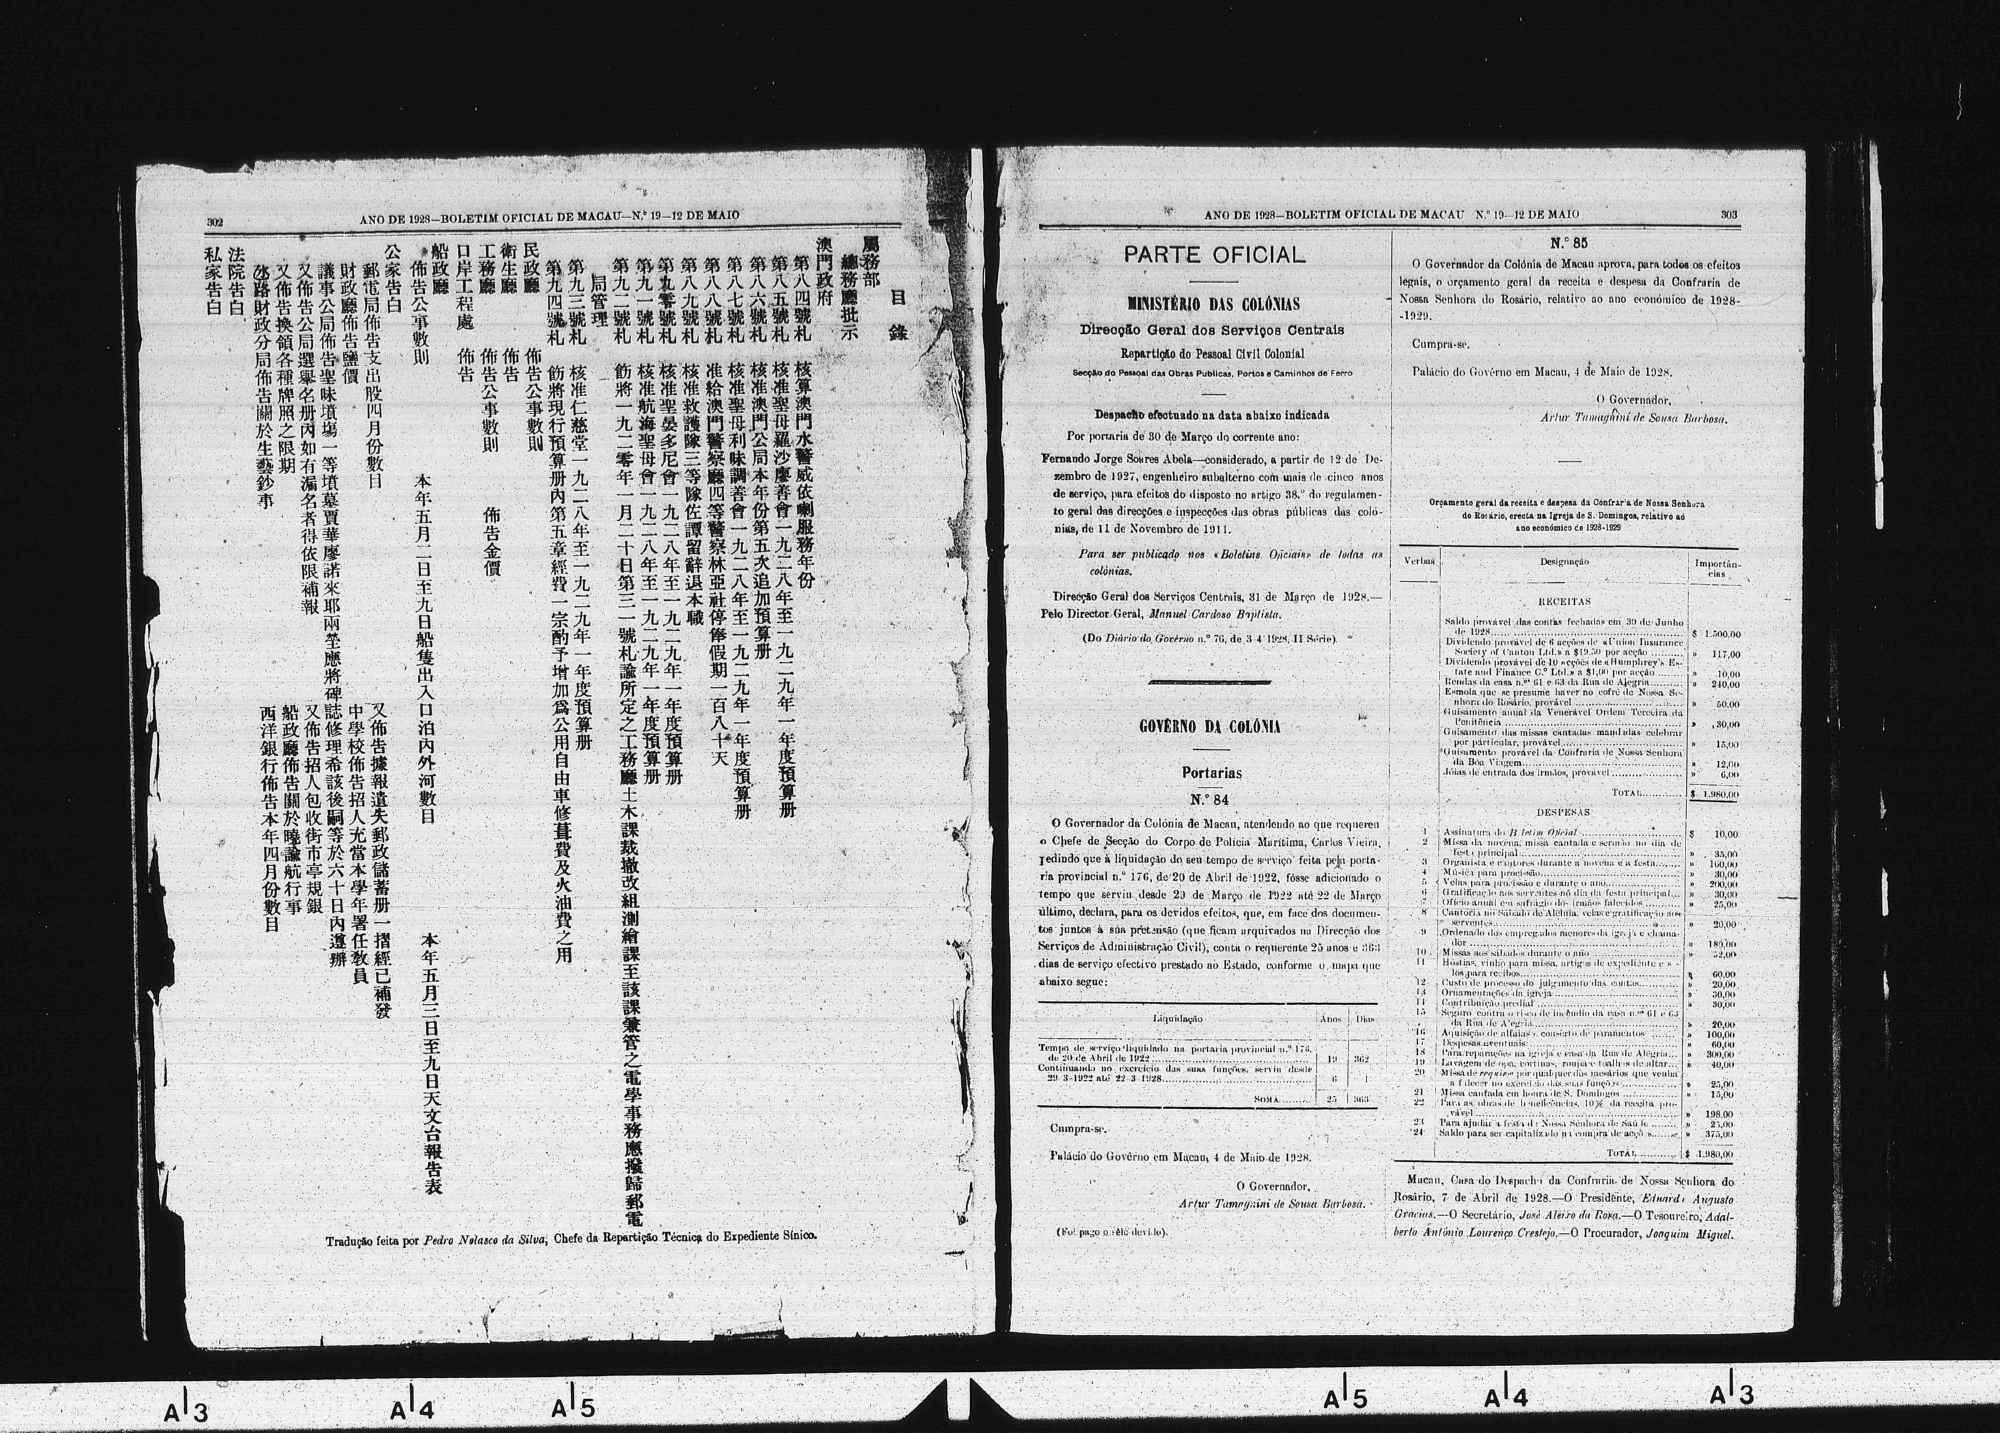 302
ANO DE 1928—BOLETIM OFICIAL DE MACAU—N.º 19—12 DE MAIO
目錄
屬務部
總務廳批示
澳門政府
第八四號札 核算澳門水警威依喇服務年份
第八五號札 核准聖母羅沙廖善會一九二八年至一九二九年一年度預算册
第八六號札 核准澳門公局本年份第五次追加預算册
第八七號札 核准聖母利味調善會一九二八年至一九二九年一年度預算册
第八八號札 准給澳門警察廳四等警察林亞社停俸假期一百八十天
第八九號札 核准救護隊三等隊佐譚留辭退本職
第九零號札 核准聖晏多尼會一九二八年至一九二九年一年度預算册
第九一號札 核准航海聖母會一九二八年至一九二九年一年度預算册
第九二號札 飭將一九二零年一月二十日第三一號札諭所定之工務廳土木課裁撤改組測繪課至該課兼管之電學事務應撥歸郵電
局管理
第九三號札 核准仁慈堂一九二八年至一九二九年一年度預算册
第九四號札 飭將現行預算册內第五章經費一宗酌予增加爲公用自由車修葺費及火油費之用
民政廳 佈告公事數則
衛生廳 佈告
工務廳 佈告公事數則 佈告金價
口岸工程處 佈告
船政廳
佈告公事數則 本年五月二日至九日船隻出入口泊內外河數目 本年五月三日至九日天文台報告表
公家告白
郵電局佈告支出股四月份數目 又佈告據報遺失郵政儲蓄册一摺經已補發
財政廳佈告鹽價 中學校佈告招人充當本學年署任教員
議事公局佈告聖味墳塲一等墳墓賈華廖諾來耶兩塋應將碑誌修理希該後嗣等於六十日內遵辦
又佈告公局選舉名册內如有漏名者得依限補報 又佈告招人包收街市亭規銀
又佈告換領各種牌照之限期 船政廳佈告關於曉諭航行事
氹路財政分局佈告關於生藝鈔事 西洋銀行佈告本年四月份數目
法院告白
私家告白
Tradução feita por Pedro Nolasco da Silva, Chefe da Repartição Técnica do Expediente Sínico.
ANO DE 1928—BOLETIM OFICIAL DE MACAU N.º 19—12 DE MAIO
303
PARTE OFICIAL
MINISTÉRIO DAS COLÓNIAS
Direcção Geral dos Serviços Centrais
Repartição do Pessoal Civil Colonial
Secção do Pessoal das Obras Publicas, Portos e Caminhos de Ferro
Despacho efectuado na data abaixo indicada
Por portaria de 30 de Março do corrente ano:
Fernando Jorge Soares Abela—considerado, a partir de 12 de De-
zembro de 1927, engenheiro subalterno com mais de cinco anos
de serviço, para efeitos do disposto no artigo 38.º do regulamen-
to geral das direcções e inspecções das obras públicas das coló-
nias, de 11 de Novembro de 1911.
Para ser publicado nos «Boletins Oficiais» de todas as
colónias.
Direcção Geral dos Serviços Centrais, 31 de Março de 1928.—
Pelo Director Geral, Manuel Cardoso Baptista.
(Do Diário do Govêrno n.º 76, de 3 4 1928, II Série).
GOVÊRNO DA COLÓNIA
Portarias
N.º 84
O Governador da Colónia de Macau, atendendo ao que requereu
o Chefe de Secção do Corpo de Polícia Marítima, Carlos Vieira,
pedindo que à liquidação do seu tempo de serviço feita pela porta-
ria provincial n.º 176, de 20 de Abril de 1922, fôsse adicionado o
tempo que serviu desde 29 de Março de 1922 até 22 de Março
último, declara, para os devidos efeitos, que, em face dos documen-
tos juntos à sua pretensão (que ficam arquivados na Direcção dos
Serviços de Administração Civil), conta o requerente 25 anos e 363
dias de serviço efectivo prestado no Estado, conforme o mapa que
abaixo segue:
Liquidação Anos Dias
Tempo de serviço liquidado na portaria provincial n.º 176,
de 20 de Abril de 1922 19 362
Continuando no exercício das suas funções, serviu desde
29-3-1922 até 22-3-1928 6 1
SOMA 25 363
Cumpra-se.
Palácio do Govêrno em Macau, 4 de Maio de 1928.
O Governador,
Artur Tamagnini de Sousa Barbosa.
(Foi pago o sêlo devido).
N.º 85
O Governador da Colónia de Macau aprova, para todos os efeitos
legais, o orçamento geral da receita e despesa da Confraria de
Nossa Senhora do Rosário, relativo ao ano económico de 1928-
-1929.
Cumpra-se.
Palácio do Govêrno em Macau, 4 de Maio de 1928.
O Governador,
Artur Tamagnini de Sousa Barbosa.
Orçamento geral da receita e despesa da Confraria de Nossa Senhora
do Rosário, erecta na Igreja de S. Domingos, relativo ao
ano económico de 1928-1929
Verbas Designação Importân-
cias
RECEITAS
Saldo provável das contas fechadas em 30 de Junho
de 1928 $ 1.500,00
Dividendo provável de 6 acções de «Union Insurance
Society of Canton Ltd.» a $19.50 por acção » 117,00
Dividendo provável de 10 acções de «Humphrey's Es-
tate and Finance C.º Ltd.» a $1,00 por acção » 10,00
Rendas da casa n.ºs 61 e 63 da Rua de Alegria » 240,00
Esmola que se presume haver no cofre de Nossa Se-
nhora do Rosário, provável » 50.00
Guisamento anual da Venerável Ordem Terceira da
Penitência » 30,00
Guisamento das missas cantadas mandadas celebrar
por particular, provável » 15,00
Guisamento provável da Confraria de Nossa Senhora
da Boa Viagem » 12,00
Jóias de entrada dos irmãos, provável » 6,00
TOTAL $ 1.980,00
DESPESAS
1 Assinatura do Boletim Oficial $ 10,00
2 Missa da novena, missa cantada e sermão no dia de
festa principal » 35,00
3 Organista e cantores durante a novena e a festa » 160,00
4 Música para procissão » 30,00
5 Velas para procissão e durante o ano » 200,00
6 Gratificação aos serventes no dia da festa principal » 30,00
7 Ofício anual em sufrágio dos irmãos falecidos » 25,00
8 Cantoria no Sábado de Aleluia, velas e gratificação aos
serventes » 20,00
9 Ordenado dos empregados menores da igreja e chama-
dor » 180,00
10 Missas aos sábados durante o ano » 52,00
11 Hóstias, vinho para missa, artigos de expediente e se-
los para recibos » 60,00
12 Custo de processo do julgamento das contas » 20,00
13 Ornamentações da igreja » 30,00
14 Contribuição predial » 30,00
15 Seguro contra o risco de incêndio da casa n.ºs 61 e 63
da Rua de Alegria » 20,00
16 Aquisição de alfaias e consêrto de paramentos » 100,00
17 Despesas eventuais » 60,00
18 Para reparações na igreja e casa da Rua de Alegria » 300,00
19 Lavagem de opa, cortinas, roupa e toalhas de altar » 40,00
20 Missa de requiem por qualquer dos mesários que venha
a falecer no exercício das suas funções » 25,00
21 Missa cantada em honra de S. Domingos » 15,00
22 Para as obras de beneficências, 10% da receita pro-
vável » 198,00
23 Para ajudar a festa de Nossa Senhora de Saúde » 25,00
24 Saldo para ser capitalizado na compra de acções » 375,00
TOTAL $ 1.980,00
Macau, Casa do Despacho da Confraria de Nossa Senhora do
Rosário, 7 de Abril de 1928.—O Presidente, Eduardo Augusto
Gracias.—O Secretário, José Aleixo da Rosa.—O Tesoureiro, Adal-
berto António Lourenço Crestejo.—O Procurador, Joaquim Miguel.
A3 A4 A5 A5 A4 A3